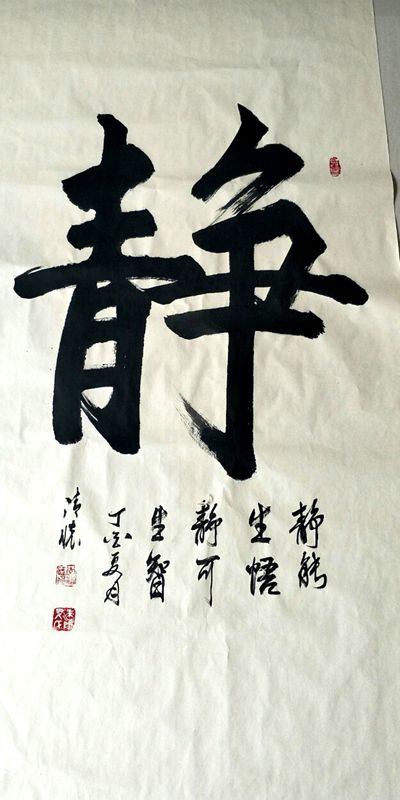 静
静能
生悟
静可
生智
丁酉夏月
清